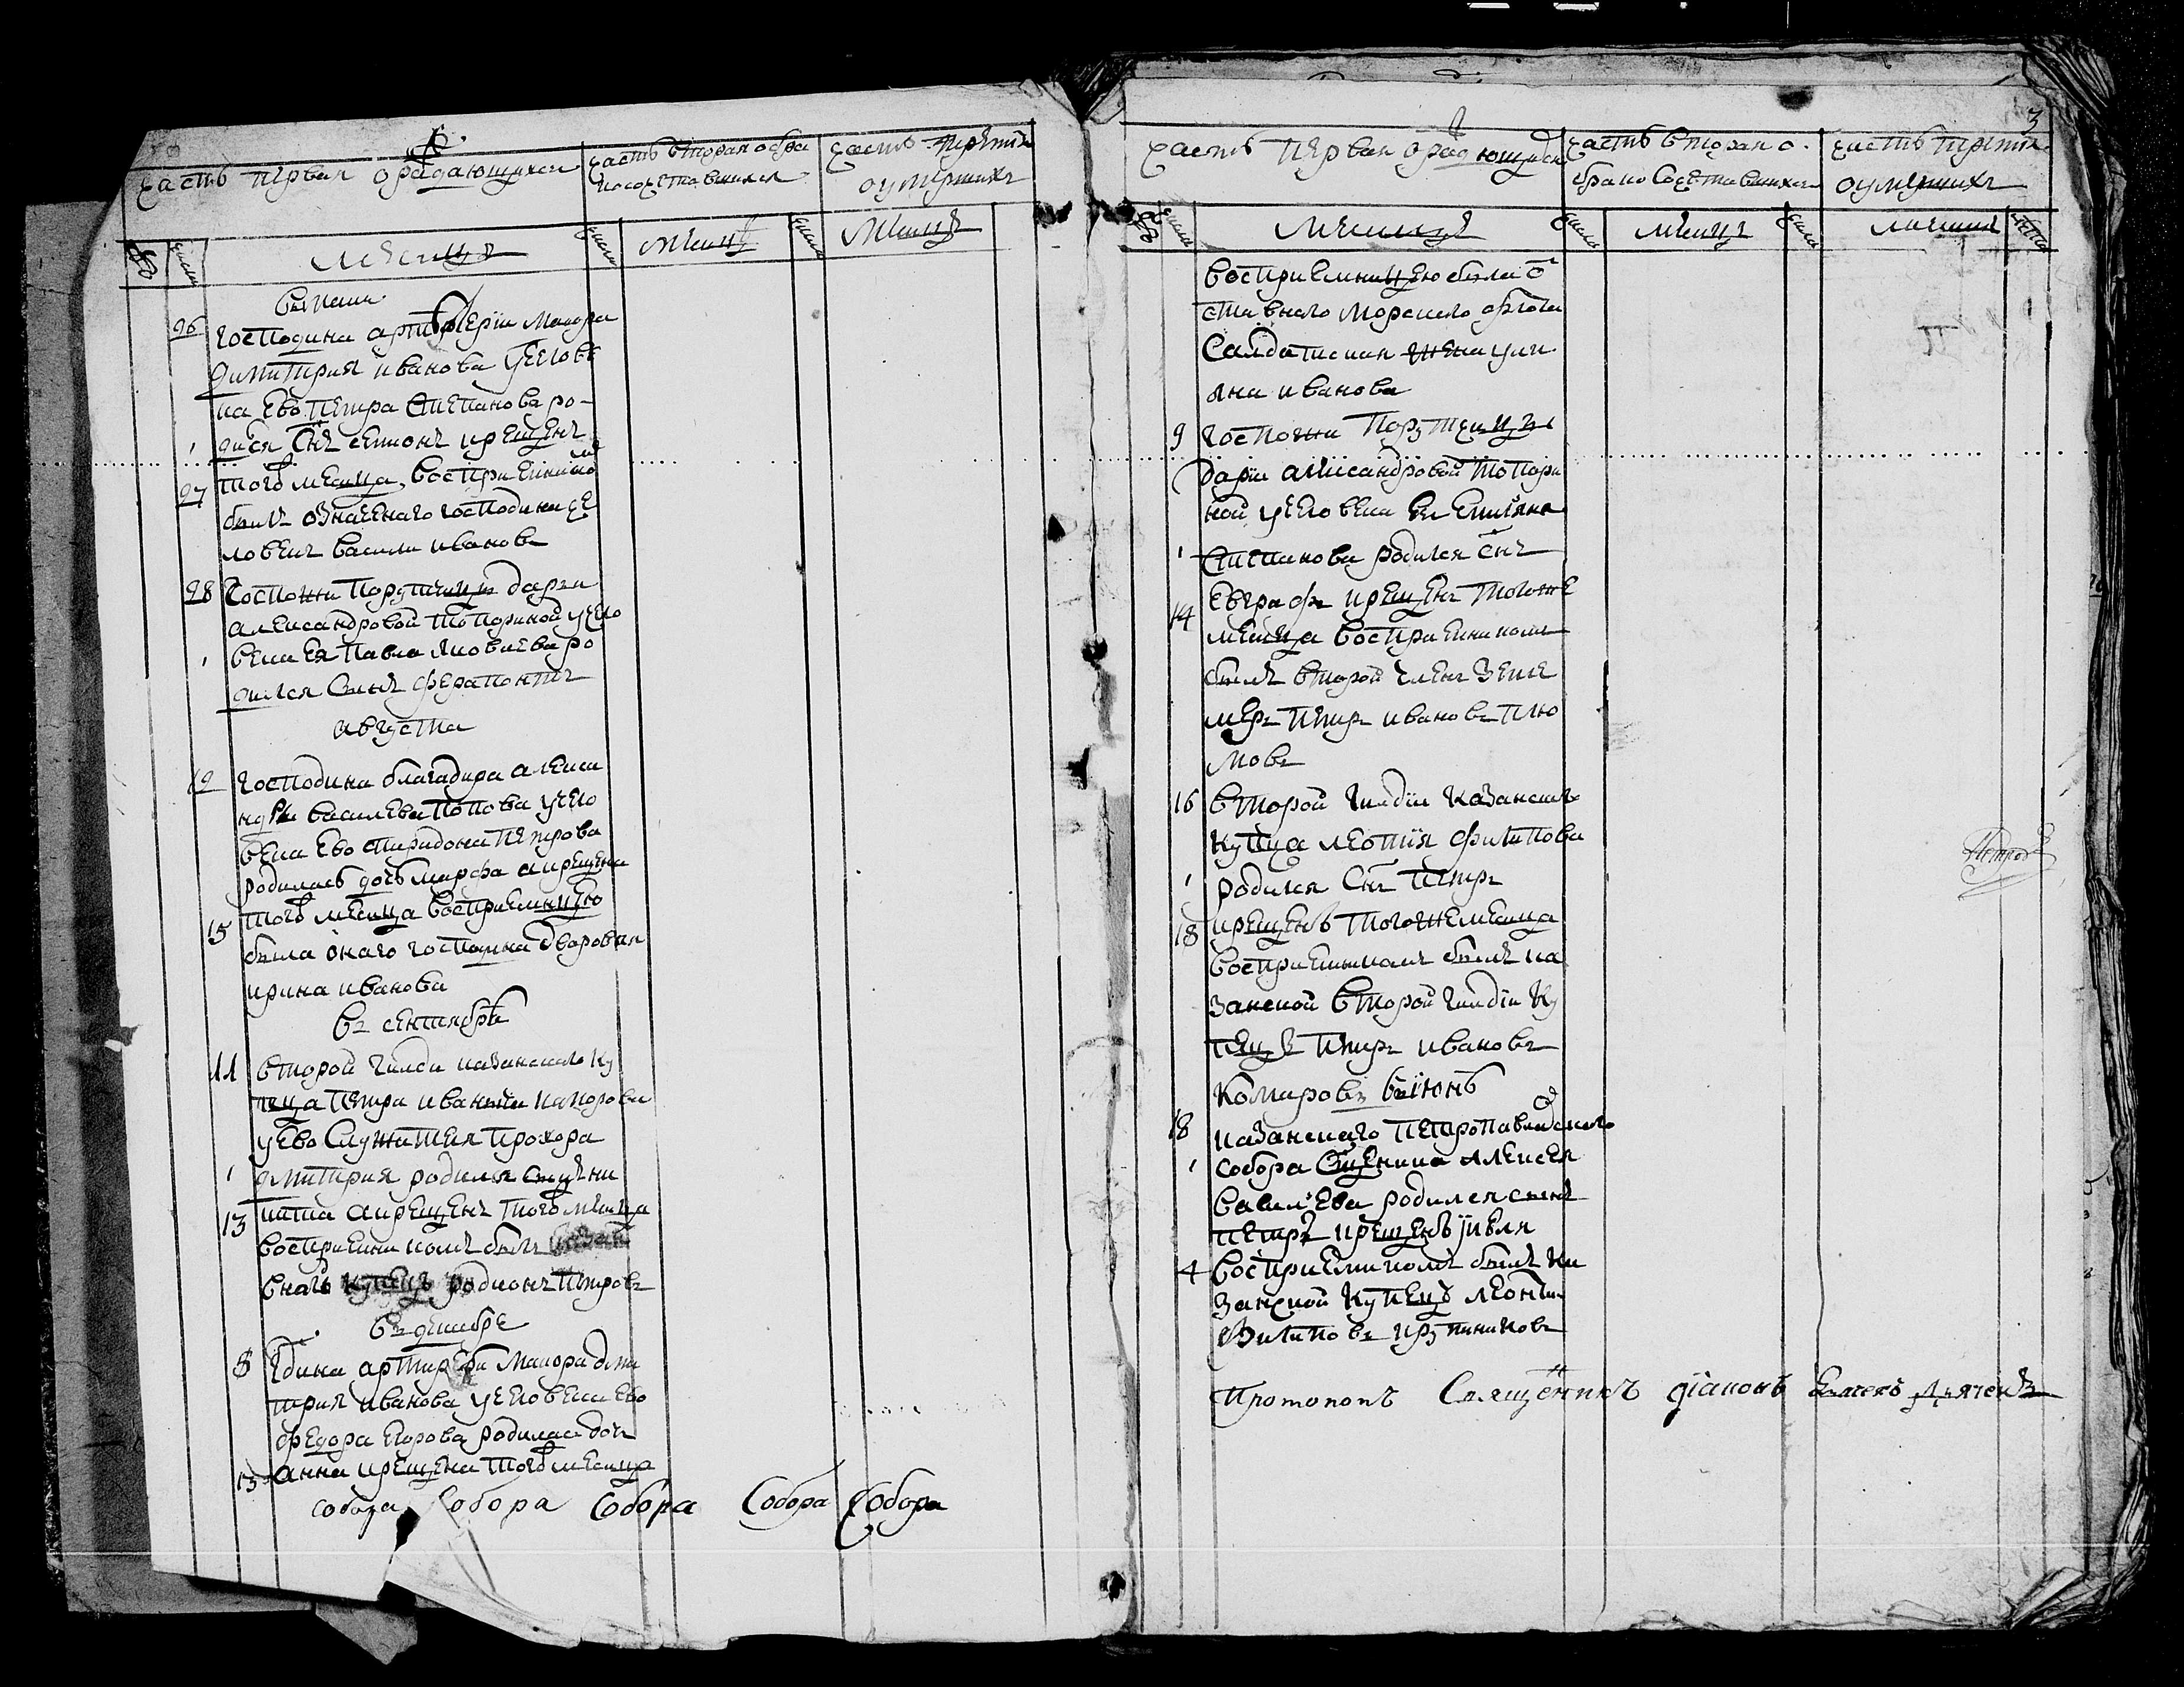 часть первая ораждающихся
часть вторая о бра
косочетавшихся
часть третия
оумершихъ
числа
месяцъ
числа
месяцъ
числа
месяцъ
26
господина артилерiи маиора
димитрия иванова челове
ка ево петра степанова ро-
1
дися снъ семионъ крещенъ
27
того месяца, восприемником
былъ означенаго господина че
ловекъ васили ивановъ
28
госпожи порутчицы дарьи
александровой топориной чело
1
века ея павла яковлева ро
дился сынъ ферапонтъ
августа
12
господина бригадира алекса
ндра василева попова чело
века ево спиридона петрова
родилась дочь марфа а крещена
15
того месяца восприемницею
была онаго господина дворовая
ирина иванова
въ сентябре
11
второй гилди казанскаго ку
пца петра иванова каморова
у ево служителя прохора
1
димитрия родился снъ ни
13
кита а крещенъ того месяца
восприемникомъ былъ казан
скаго купецъ родионъ петровъ
въ декабре
8
гдина артилерiи маиора дми
трия иванова человека ево
федора егорова родилась дочь
15
анна крещена того месяца
собора Собора Собора Собора Собора
3
часть первая ораждающихся
часть вторая о
бракосочетавшихся
часть третия
оумершихъ
числа
месяцъ
числа
месяцъ
числа
месяцъ
лета
восприемницею была о
ставнаго морскаго флота
салдатская жена ули
яна иванова
9
госпожи порутчицы
дарiи александровой топори
ной человека ея емилiяна
1
степанова родился снъ
евграфъ крещенъ того же
14
месяца восприемникомъ
былъ второй членъ земле
меръ петръ ивановъ плю
мовъ
16
второй гилдiи казанскаго
купца леотiя филипова
1
родился снъ петръ
18
крещенъ тогожемесяца
восприемникомъ былъ ка
занской второй гилдiи ку
пецъ петръ ивановъ
комаровъ въ iюнь
18
казанскаго петропавловскаго
1
собора сщеника алексея
васильева родился сынъ
петръ крещенъ iюля
4
восприемникомъ былъ ка
занской купецъ леонтiи
филиповъ крупениковъ
Петровъ
протопопъ Священникъ дiаконъ